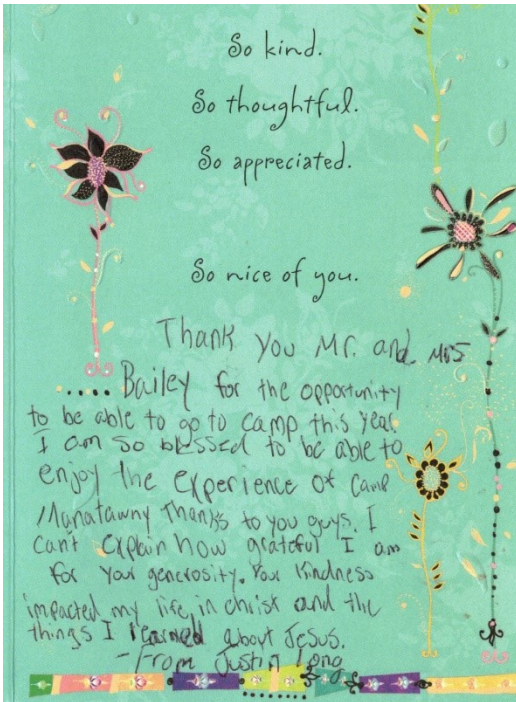 So kind.
So thoughtful.
So appreciated.
So nice of you.
Thank you Mr. and Mrs
Bailey for the opportunity
to be able to go to camp this year.
I am so blessed to be able to
enjoy the experience of camp
Manatawny Thanks to you guys. I
can't explain how grateful I am
for your generosity. Your kindness
impacted my life in christ and the
things I learned about Jesus.
- From Justin Long